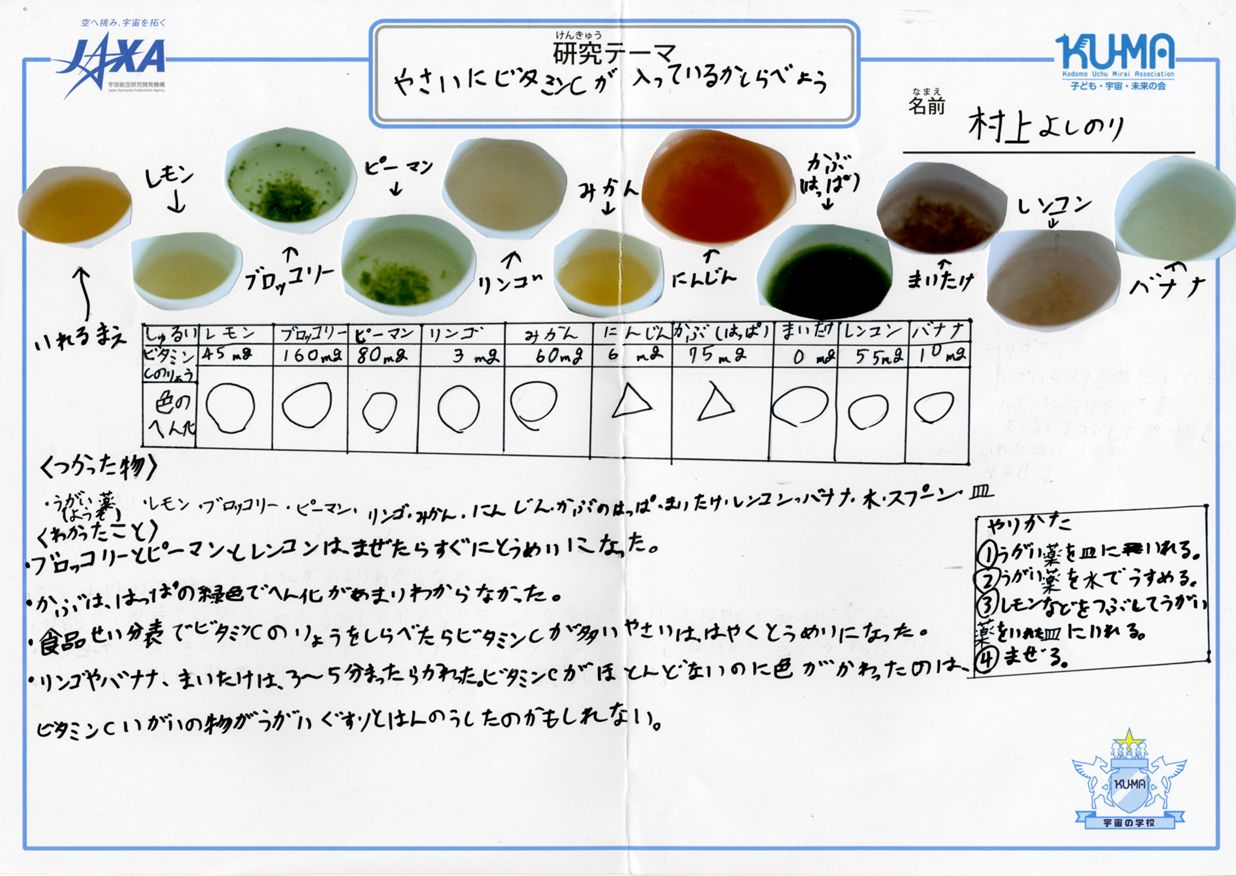 空へ挑み、宇宙を拓く
JAXA
宇宙航空研究開発機構
Japan Aerospace Exploration Agency
けんきゅう
研究テーマ
やさいにビタミンCが入っているかしらべよう
KU-MA
Kodomo Uchu Mirai Association
子ども・宇宙・未来の会
なまえ
名前
村上よしのり
いれるまえ
レモン
ブロッコリー
ピーマン
リンゴ
みかん
にんじん
かぶ(はっぱ)
まいたけ
レンコン
バナナ
しゅるい レモン ブロッコリー ピーマン リンゴ みかん にんじん かぶ(はっぱ) まいたけ レンコン バナナ
ビタミンCのりょう 45mg 160mg 80mg 3mg 60mg 6mg 75mg 0mg 55mg 10mg
色のへん化 ○ ○ ○ ○ ○ △ △ ○ ○ ○
〈つかった物〉
・うがい薬(ようそ)・レモン・ブロッコリー・ピーマン・リンゴ・みかん・にんじん・かぶのはっぱ・まいたけ・レンコン・バナナ・水・スプーン・皿
〈わかったこと〉
・ブロッコリーとピーマンとレンコンは、まぜたらすぐにとうめいになった。
・かぶは、はっぱの緑色でへん化があまりわからなかった。
・食品せい分表でビタミンCのりょうをしらべたらビタミンCが多いやさいは、はやくとうめいになった。
・リンゴやバナナ、まいたけは、3〜5分まったらかわった。ビタミンCがほとんどないのに色がかわったのは、
ビタミンCいがいの物がうがいぐすりとはんのうしたのかもしれない。
やりかた
①うがい薬を皿にいれる。
②うがい薬を水でうすめる。
③レモンなどをつぶしてうがい
薬をいれた皿にいれる。
④まぜる。
KU-MA
宇宙の学校